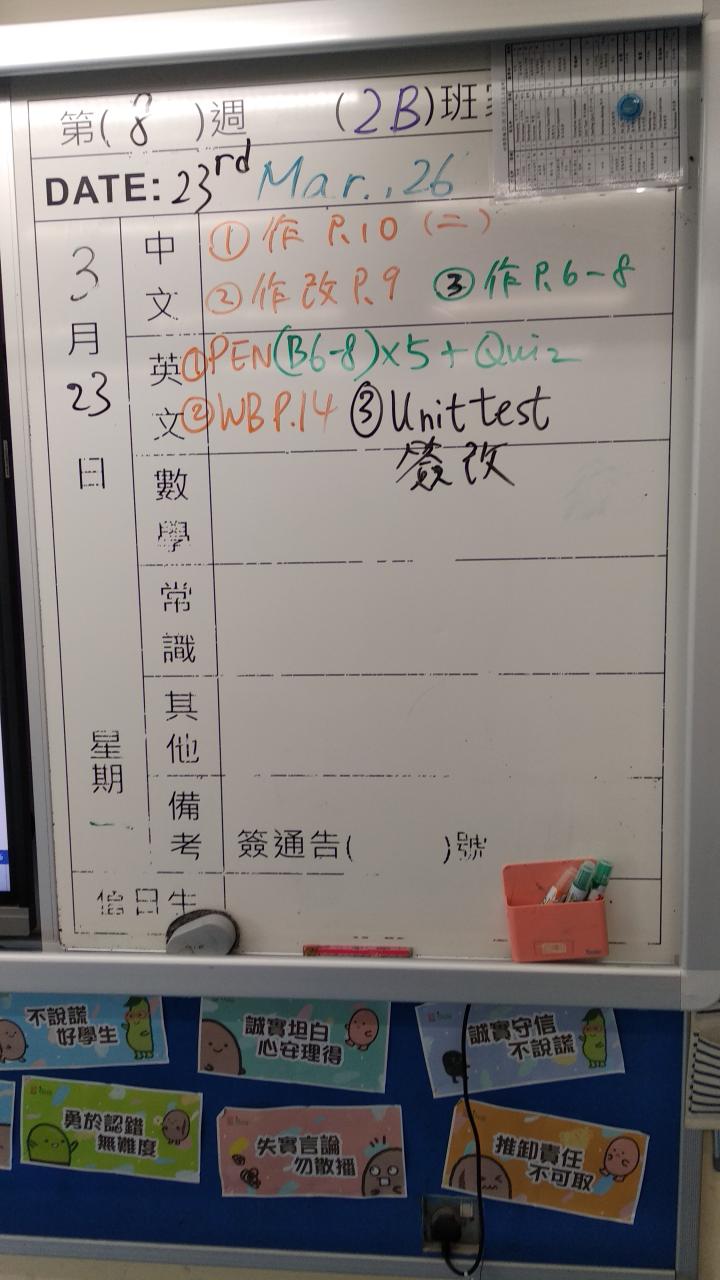 第(8)週 (2B)班
DATE: 23rd Mar., 26
3月23日 星期一
中文
① 作 P.10 (二)
② 作改 P.9 ③ 作 P.6-8
英文
① PEN (B6-8)×5 + Quiz
② WB P.14 ③ Unit test
簽改
數學
常識
其他
備考
簽通告( )號
值日生
不說謊
好學生
誠實坦白
心安理得
誠實守信
不說謊
勇於認錯
無難度
失實言論
勿散播
推卸責任
不可取